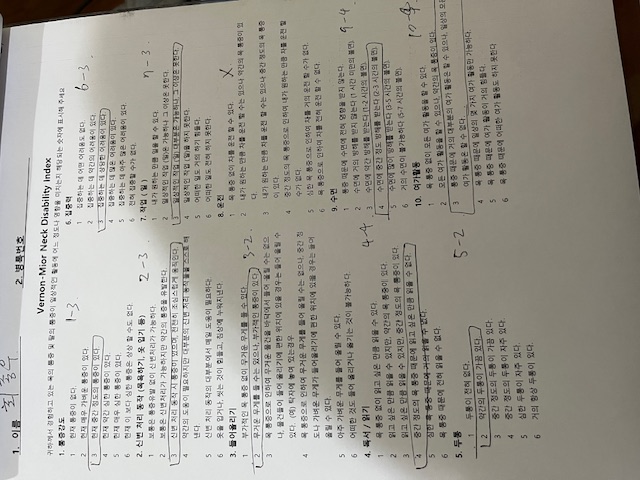 1. 이름 최종우
2. 병록번호
Vernon-Mior Neck Disability Index
귀하께서 경험하고 있는 목의 통증 및 팔의 통증이 일상적인 활동에 어느 정도나 영향을 미치는지 해당되는 숫자에 표시해 주세요
1. 통증강도
1 현재 통증이 없다.
2 현재 매우 가벼운 통증이 있다.
3 현재 중간 정도의 통증이 있다.
4 현재 약간 심한 통증이 있다.
5 현재 매우 심한 통증이 있다.
6 현재 이 보다 심한 통증은 상상 할 수도 없다.
1-3
2. 신변 처리 동작 (목욕하기, 옷 입기 등)
2-3
1 보통은 통증유발 없이 신변처리가 가능하다.
2 보통은 신변처리가 가능하지만 약간의 통증을 유발한다.
3 신변 처리 동작 시 통증이 있으며, 천천히 조심스럽게 움직인다.
4 약간의 도움이 필요하지만 대부분의 신변 처리 동작들을 스스로 해
낸다
5 신변 처리 동작의 대부분에서 매일 도움이 필요하다.
6 옷을 입거나, 씻는 것이 힘들고, 침상에 누워지낸다.
3. 들어올리기
1 부가적인 목 통증 없이 무거운 무게를 들 수 있다.
2 무거운 무게를 들 수는 있으나, 부가적인 통증이 있다.
3-2.
3 목 통증으로 인하여 무거운 물건을 바닥에서 들어 올릴 수는 없으
나, 물건들이 들어 올리기에 편한 위치에 있을 경우는 들어 올릴 수
있다. (예) 탁자에 놓여 있는경우
4 목 통증으로 인하여 무거운 무게를 들어 올릴 수는 없으나, 중간 정
도나 가벼운 무게가 들어올리기에 편한 위치에 있을 경우는 들어
올릴 수 있다.
5 아주 가벼운 무게를 들어 올릴 수 있다.
6 어떠한 것도 들어 올리거나 옮기는 것이 불가능하다.
4. 독서 / 읽기
4-4
1 목 통증 없이 읽고 싶은 만큼 읽을 수 있다.
2 읽고 싶은 만큼 읽을 수 있지만, 약간의 목 통증이 있다.
3 읽고 싶은 만큼 읽을 수 있지만, 중간 정도의 목 통증이 있다.
4 중간 정도의 목 통증 때문에 읽고 싶은 만큼 읽을 수 없다.
5 심한 목 통증 때문에 거의 읽을 수 없다.
6 목 통증 때문에 전혀 읽을 수 없다.
5. 두통
5-2
1 두통이 전혀 없다.
2 약간의 두통이 가끔 있다.
3 중간 정도의 두통이 가끔 있다.
4 중간 정도의 두통이 자주 있다.
5 심한 두통이 자주 있다.
6 거의 항상 두통이 있다.
6. 집중력
6-3
1 집중하는 데 어떤 어려움도 없다.
2 집중하는 데 약간의 어려움이 있다.
3 집중하는 데 상당한 어려움이 있다.
4 집중하는 데 많은 어려움이 있다.
5 집중하는 데 아주 많은 어려움이 있다.
6 전혀 집중할 수가 없다.
7. 작업 ( 일 )
7-3
1 내가 원하는 만큼 일을 할 수 있다.
2 일상적인 작업 (일)은 가능하나 그 이상은 못한다.
3 일상적인 작업 (일) 대부분은 가능하나, 그 이상은 못한다.
4 일상적인 작업 (일)을 하지 못한다.
5 어떠한 일도 거의 하기 힘들다.
6 어떠한 일도 전혀 하지 못한다.
8. 운전
X.
1 목 통증 없이 차를 운전 할 수 있다.
2 내가 원하는 만큼 차를 운전 할 수는 있으나 약간의 목 통증이 있
다.
3 내가 원하는 만큼 차를 운전 할 수는 있으나 중간 정도의 목 통증
이 있다.
4 중간 정도의 목 통증으로 인하여 내가 원하는 만큼 차를 운전 할
수가 없다.
5 심한 목 통증으로 인하여 차를 거의 운전 할 수가 없다.
6 목 통증으로 인하여 차를 전혀 운전 할 수 없다.
9. 수면
9-4
1 통증 때문에 수면에 전혀 영향을 받지 않는다.
2 수면에 거의 방해를 받지 않는다 (1 시간 미만의 불면)
3 수면에 약간 방해를 받는다 (1-2 시간의 불면)
4 수면에 중간 정도 방해를 받는다 (2-3 시간의 불면)
5 수면에 많이 방해를 받는다 (3-5 시간의 불면)
6 거의 수면이 불가능하다 (5-7 시간의 불면).
10. 여가활동
1 목 통증 없이 모든 여가 활동을 할 수 있다.
2 모든 여가 활동을 할 수 있으나, 약간의 목 통증이 있다.
3 통증 때문에 거의 대부분의 여가 활동은 할 수 있으나, 일상의 모든
여가 활동은 할 수 없다.
4 목 통증 때문에 일상의 몇 가지 여가 활동만 가능하다.
5 목 통증 때문에 여가 활동이 거의 힘들다.
6 목 통증 때문에 어떠한 여가 활동도 하지 못한다